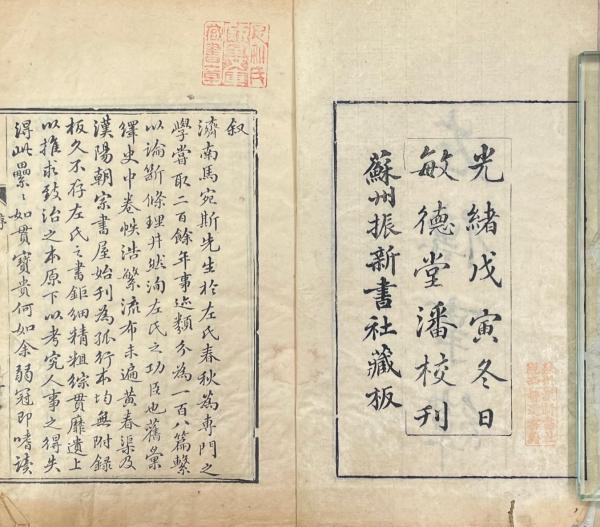 光緒戊寅冬日
敏德堂潘校刊
蘇州振新書社藏板
叙
濟南馬宛斯先生於左氏春秋為專門之
學嘗取二百餘年事迹類分為一百八篇繫
以論斷條理井然洵左氏之功臣也舊彙
繹史中卷帙浩繁流布未遍黃春渠及
漢陽朝宗書屋始刊為孤行本均無附錄
板久不存左氏之書鉅細精粗綜貫靡遺上
以推求致治之本原下以考究人事之得失
得此纍〻如貫寶貴何如余弱冠即嗜讀
序